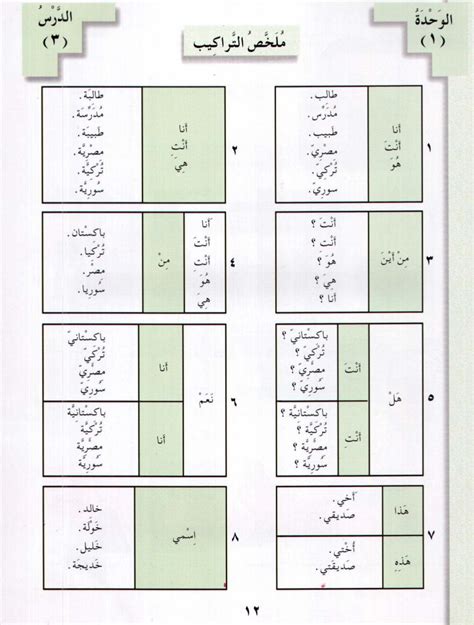 الوَحْدَةُ
(١)
الدَّرْسُ
(٣)
مُلَخَّصُ التَّراكِيب
١
أنا
أَنْتَ
هُوَ
طالب.
مُدَرِّس.
طَبيب.
مِصْرِيّ.
تُرْكِيّ.
سُورِيّ.
٢
أنا
أَنْتِ
هِيَ
طالِبَة.
مُدَرِّسَة.
طَبيبَة.
مِصْرِيَّة.
تُرْكِيَّة.
سُورِيَّة.
٣
مِنْ أَيْنَ
أَنْتَ ؟
أَنْتِ ؟
هُوَ ؟
هِيَ ؟
أنا ؟
٤
أنا
أَنْتَ
أَنْتِ
هُوَ
هِيَ
مِنْ
باكِسْتان.
تُركِيا.
مِصْر.
سُورِيا.
٥
هَلْ
أَنْتَ
باكِسْتانِيّ ؟
تُرْكِيّ ؟
مِصْرِيّ ؟
سُورِيّ ؟
أَنْتِ
باكِسْتانِيَّة ؟
تُرْكِيَّة ؟
مِصْرِيَّة ؟
سُورِيَّة ؟
٦
نَعَمْ
أنا
باكِسْتانِيّ
تُرْكِيّ
مِصْرِيّ
سُورِيّ
أنا
باكِسْتانِيَّة
تُرْكِيَّة
مِصْرِيَّة
سُورِيَّة
٧
هَذا
أَخي.
صَديقي.
هَذِهِ
أُخْتي.
صَديقَتي.
٨
اِسْمي
خالد.
خَوْلَة.
خَليل.
خَديجَة.
١٢